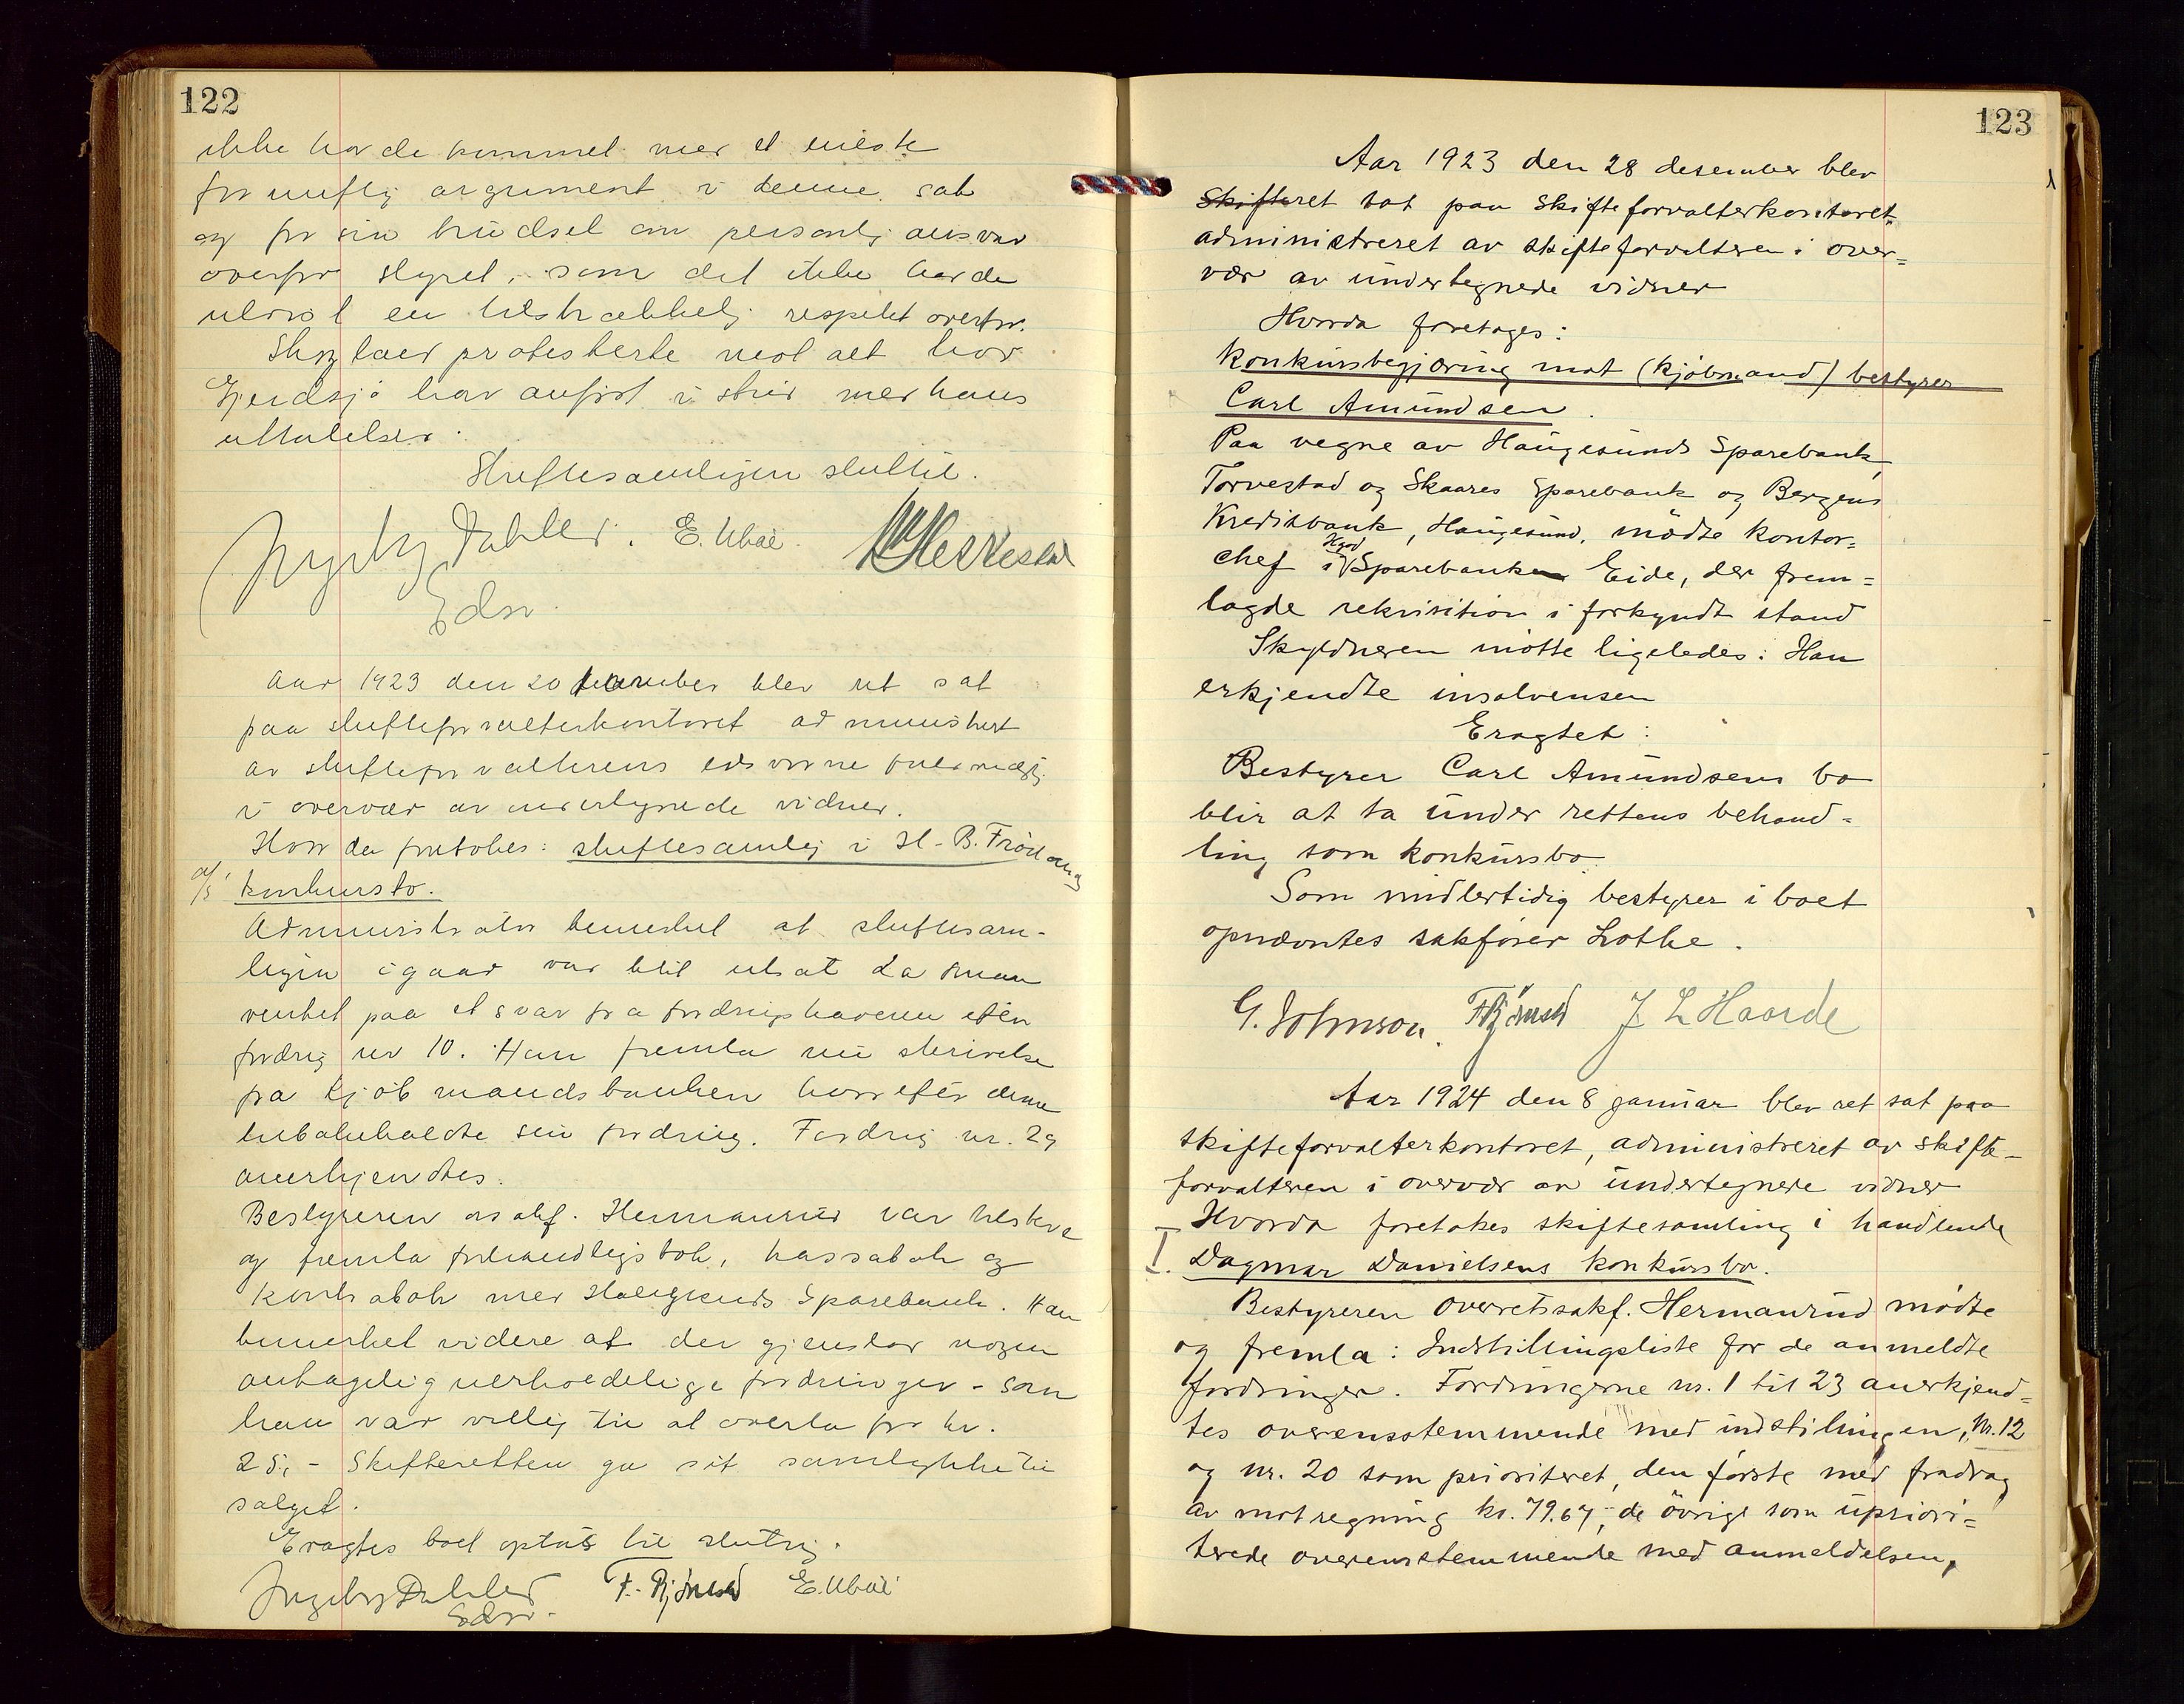 122
ikke havde kommet med et eneste
fornuftig argument i denne sak
og for sin trudsel om personlig ansvar
overfor styret, som det ikke havde
utvist en tilstrækkelig respekt overfor.
protesterte mot alt hvad
Gjerdsjø har anført i strid med hans
uttalelser.
Skiftesamlingen sluttet.
Ingeborg Dahler. E. Ubøe
Edsv.
Aar 1923 den 20 desember blev ret sat
paa skifteforvalterkontoret administrert
av skifteforvalterens edsvorne fuldmægtig
i overvær av undertegnede vidner.
Hvorda foretokes: skiftesamling i H. B.
konkursbo.
Administrator bemerket at skiftesam-
lingen igaar var blit utsat da man
ventet paa et svar fra fordringshaveren efter
fordring nr 10. Han fremla nu skrivelse
fra Kjøbmandsbanken hvorefter denne
tilbakeholdte sin fordring. Fordring nr. 29
anerkjendtes.
Bestyreren o.r.sakf. Hermanrud var tilstede
og fremla forhandlingsbok, kassabok og
kontrabok med Haugesunds Sparebank. Han
bemerket videre at der gjenstod nogen
antagelig uerholdelige fordringer - som
han var villig til at overta for kr.
25,- Skifteretten ga sit samtykke til
salget.
Eragtes boet optat til slutning.
Ingeborg Dahler F. Bjørnsen E. Ubøe
Edsv.
123
Aar 1923 den 28 desember blev
Skifteret sat paa skifteforvalterkontoret
administreret av skifteforvalteren i over=
vær av undertegnede vidner
Hvorda foretages:
Konkursbegjæring mot (kjøbmand) bestyrer
Carl Amundsen.
Paa vegne av Haugesunds Sparebank,
Torvestad og Skaares Sparebank og Bergens
Kreditbank, Haugesund, mødte kontor=
chef i Hgsd Sparebanken Eide, der frem=
lagde rekvisition i forkyndt stand
Skyldneren møtte ligeledes: Han
erkjendte insolvensen
Eragtet:
Bestyrer Carl Amundsens bo
blir at ta under rettens behand=
ling som konkursbo.
Som midlertidig bestyrer i boet
opnævntes sakfører Lothe.
G. Johnson. F. Bjørnsen J L Haarde
Aar 1924 den 8 januar blev ret sat paa
skifteforvalterkontoret, administreret av skifte-
forvalteren i overvær av undertegnede vidner
Hvorda foretokes skiftesamling i handlende
I. Dagmar Danielsens konkursbo.
Bestyreren overretssakf. Hermanrud mødte
og fremla: Indstillingsliste for de anmeldte
fordringer. Fordringerne nr. 1 til 23 anerkjend=
tes overensstemmende med indstillingen, Nr. 12
og nr. 20 som prioriteret, den første med fradrag
av motregning kr. 79.67, de øvrige som upriori=
terede overensstemmende med anmeldelsen,